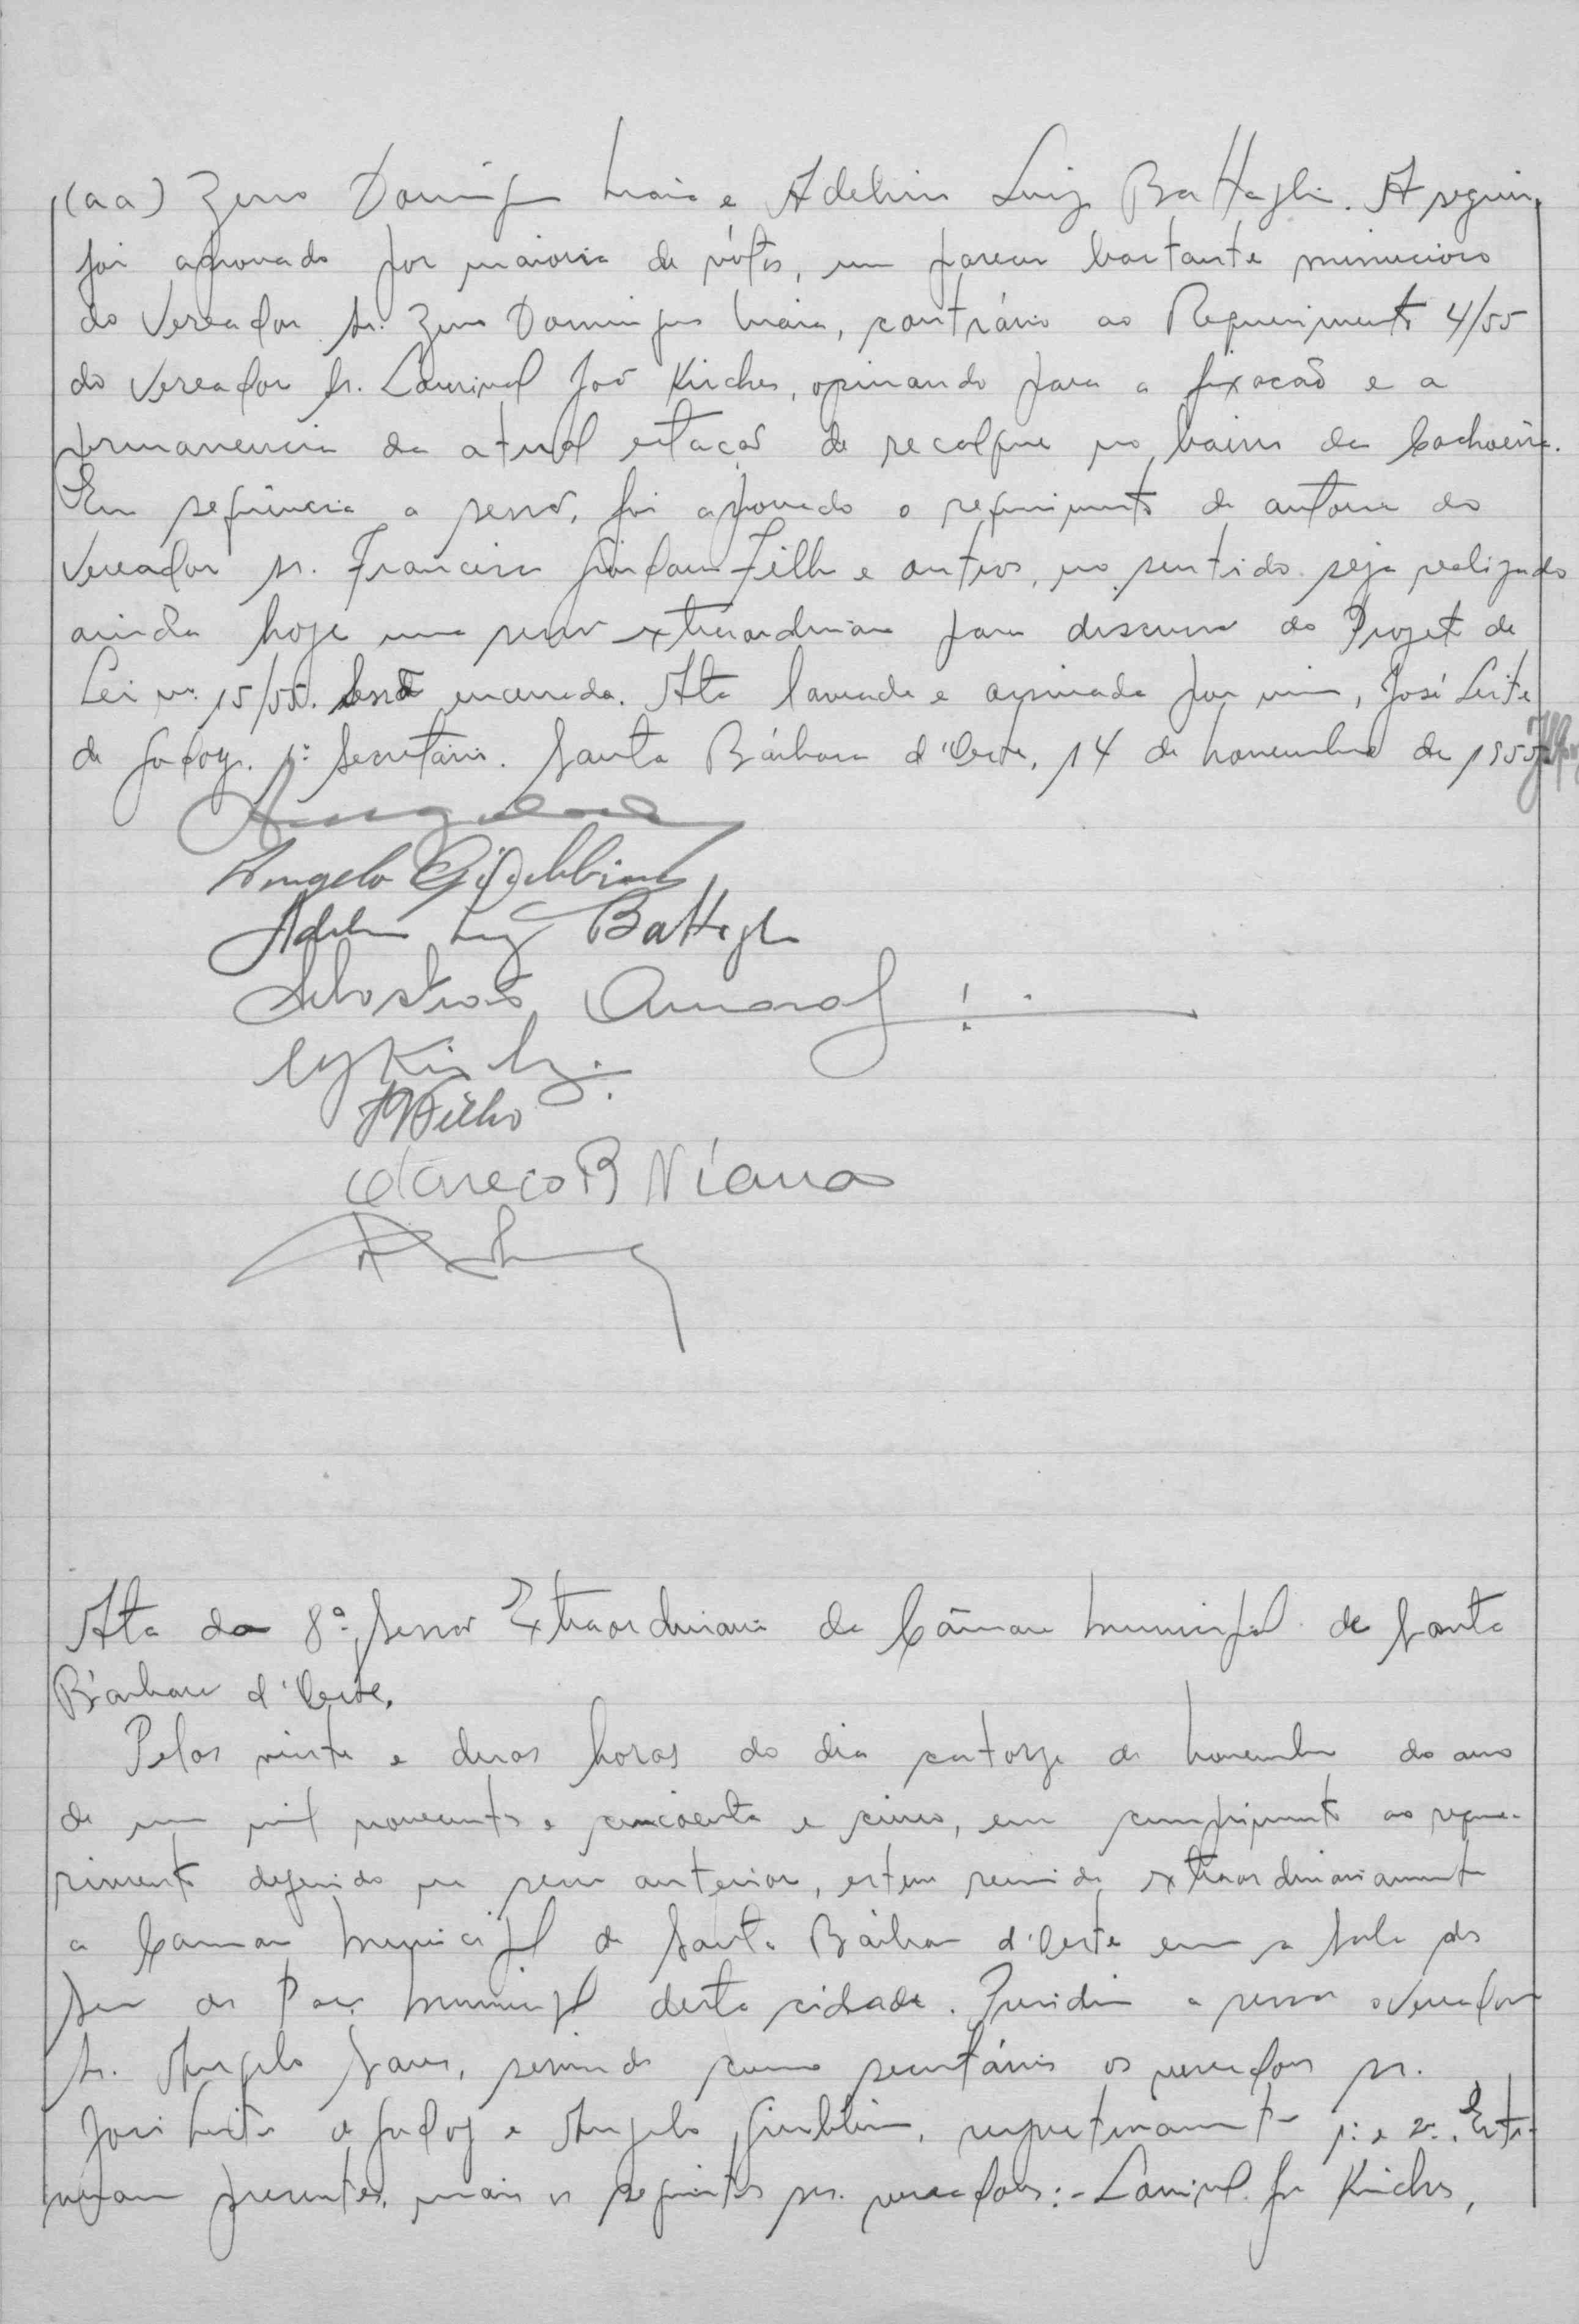 (aa) Zeno Domingos Maia e Adelino Luiz Battaglia. A seguir,
foi aprovado por maioria de vótos, um parecer bastante minucioso
do Vereador Sr. Zeno Domingos Maia, contrário ao Requerimento 4/55
do Vereador Sr. Lourival João Kirches, opinando para a fixacão e a
permanencia da atual estacão de recalque no bairro da Cachoeira.
Em sequência a sessão, foi aprovado o requerimento de autoria do
Vereador sr. Francisco Giordano Filho e outros, no sentido seja realizado
ainda hoje uma sessão extraordinaria para discussão do Projeto de
Lei nº 15/55. Sessão encerrada. Ata lavrada e assinada por mim, José Leite
de Godoy. 1º Secretário. Santa Bárbara d'Oeste, 14 de Novembro de 1955
Angelo Giubbina
Adelino Luiz Battaglia
Sebastião Amaral
Filho
B Viana
Ata da 8ª Sessão Extraordinaria da Câmara Municipal de Santa
Bárbara d'Oeste.
Pelas vinte e duas horas do dia catorze de Novembro do ano
de um mil novecentos e cincoenta e cinco, em cumprimento ao reque-
rimento deferido na sessão anterior, esteve reunida extraordinariamente
a Camara Municipal de Santa Bárbara d'Oeste em a sala das
do Paço Municipal desta cidade. Presidiu a sessão o Vereador
Sr. Angelo, servindo como secretários os vereadores srs.
José Leite de Godoy e Angelo Giubbina, respectivamente 1º e 2º. Esti-
veram presentes, mais os seguintes srs. vereadores:- Lourival João Kirches,